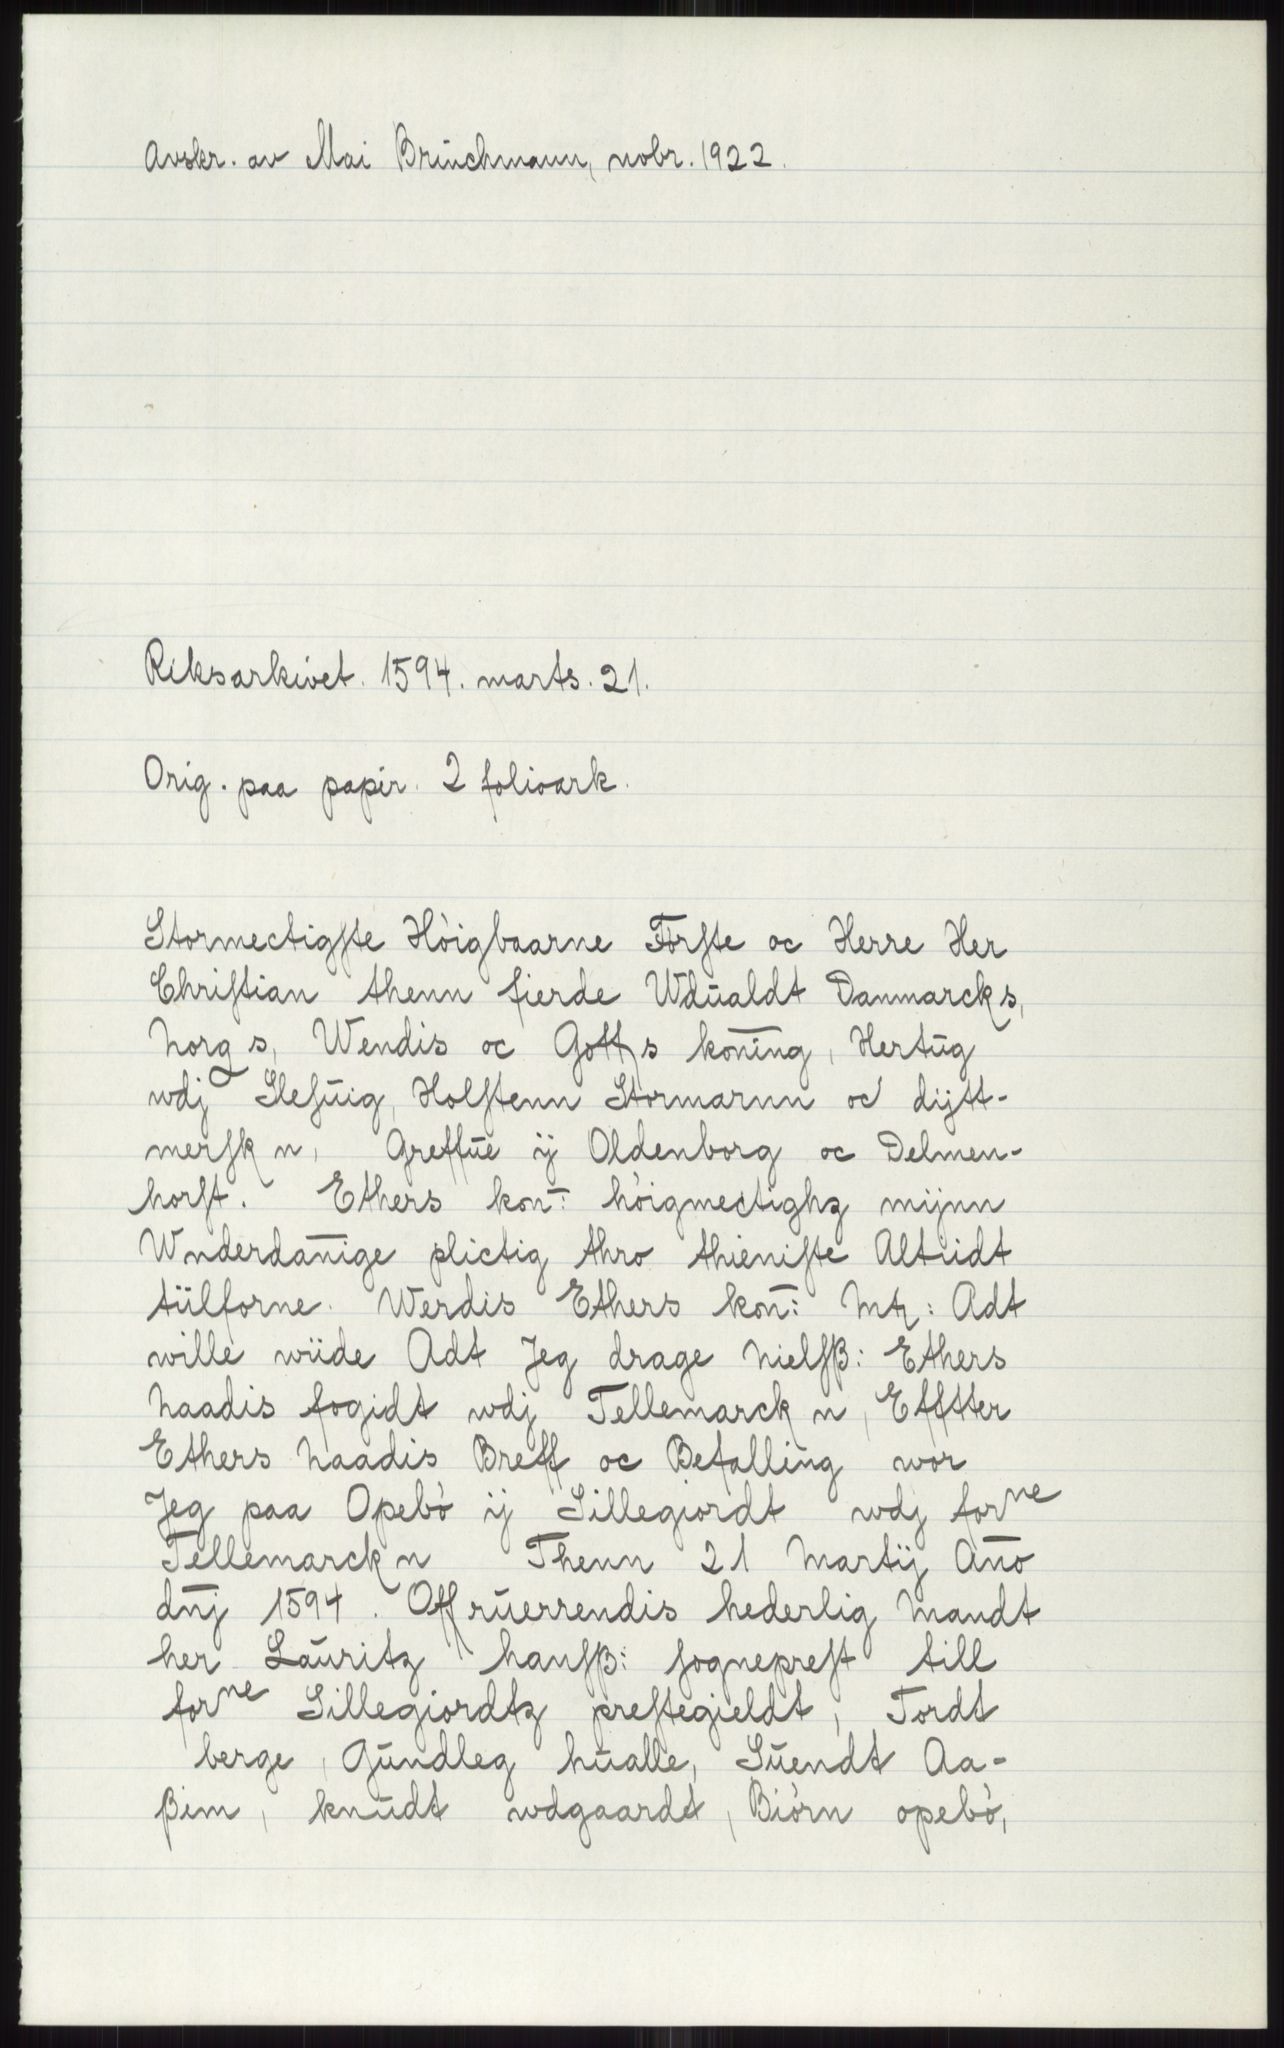 Avskr. av Mai Brüchmann, nobr. 1922.
Riksarkivet. 1594. marts. 21.
Orig. paa papir. 2 folioark.
Stormectigſte Høigbaarne Førſte oc Herre Her
Chriſtian thenn fierde Wdualdt Danmarcks,
Norgs, Wendis oc Gotts koning, Hertug
wdj Sleſuig, Holſtenn Stormarnn oc dijtt-
merſkn, Greffue ij Oldenborg oc Delmen-
horſt. Ethers kon: høigmectighz mijnn
Wnderdanige plictig thro thieniſte Altiidt
tiilforne. Werdis Ethers kon: Mtz: Adt
wille wiide Adt Jeg drage Nielſß: Ethers
Naadis fogidt wdj Tellemarckn, Effter
Ethers Naadis Breff oc Befalling wor
Jeg paa Opebø ij Sillegiordt wdj forne
Tellemarckn Thenn 21 Martij Ano
dnj 1594. Offruerrendis hederlig Mandt
her Lauritz hanſß: ſogneprest till
forne Sillegiordtz preſtegieldt, Tordt
berge, Gundleg hualle, Suendt Aa-
ßim, knudt wdgaardt, Biørn opebø,